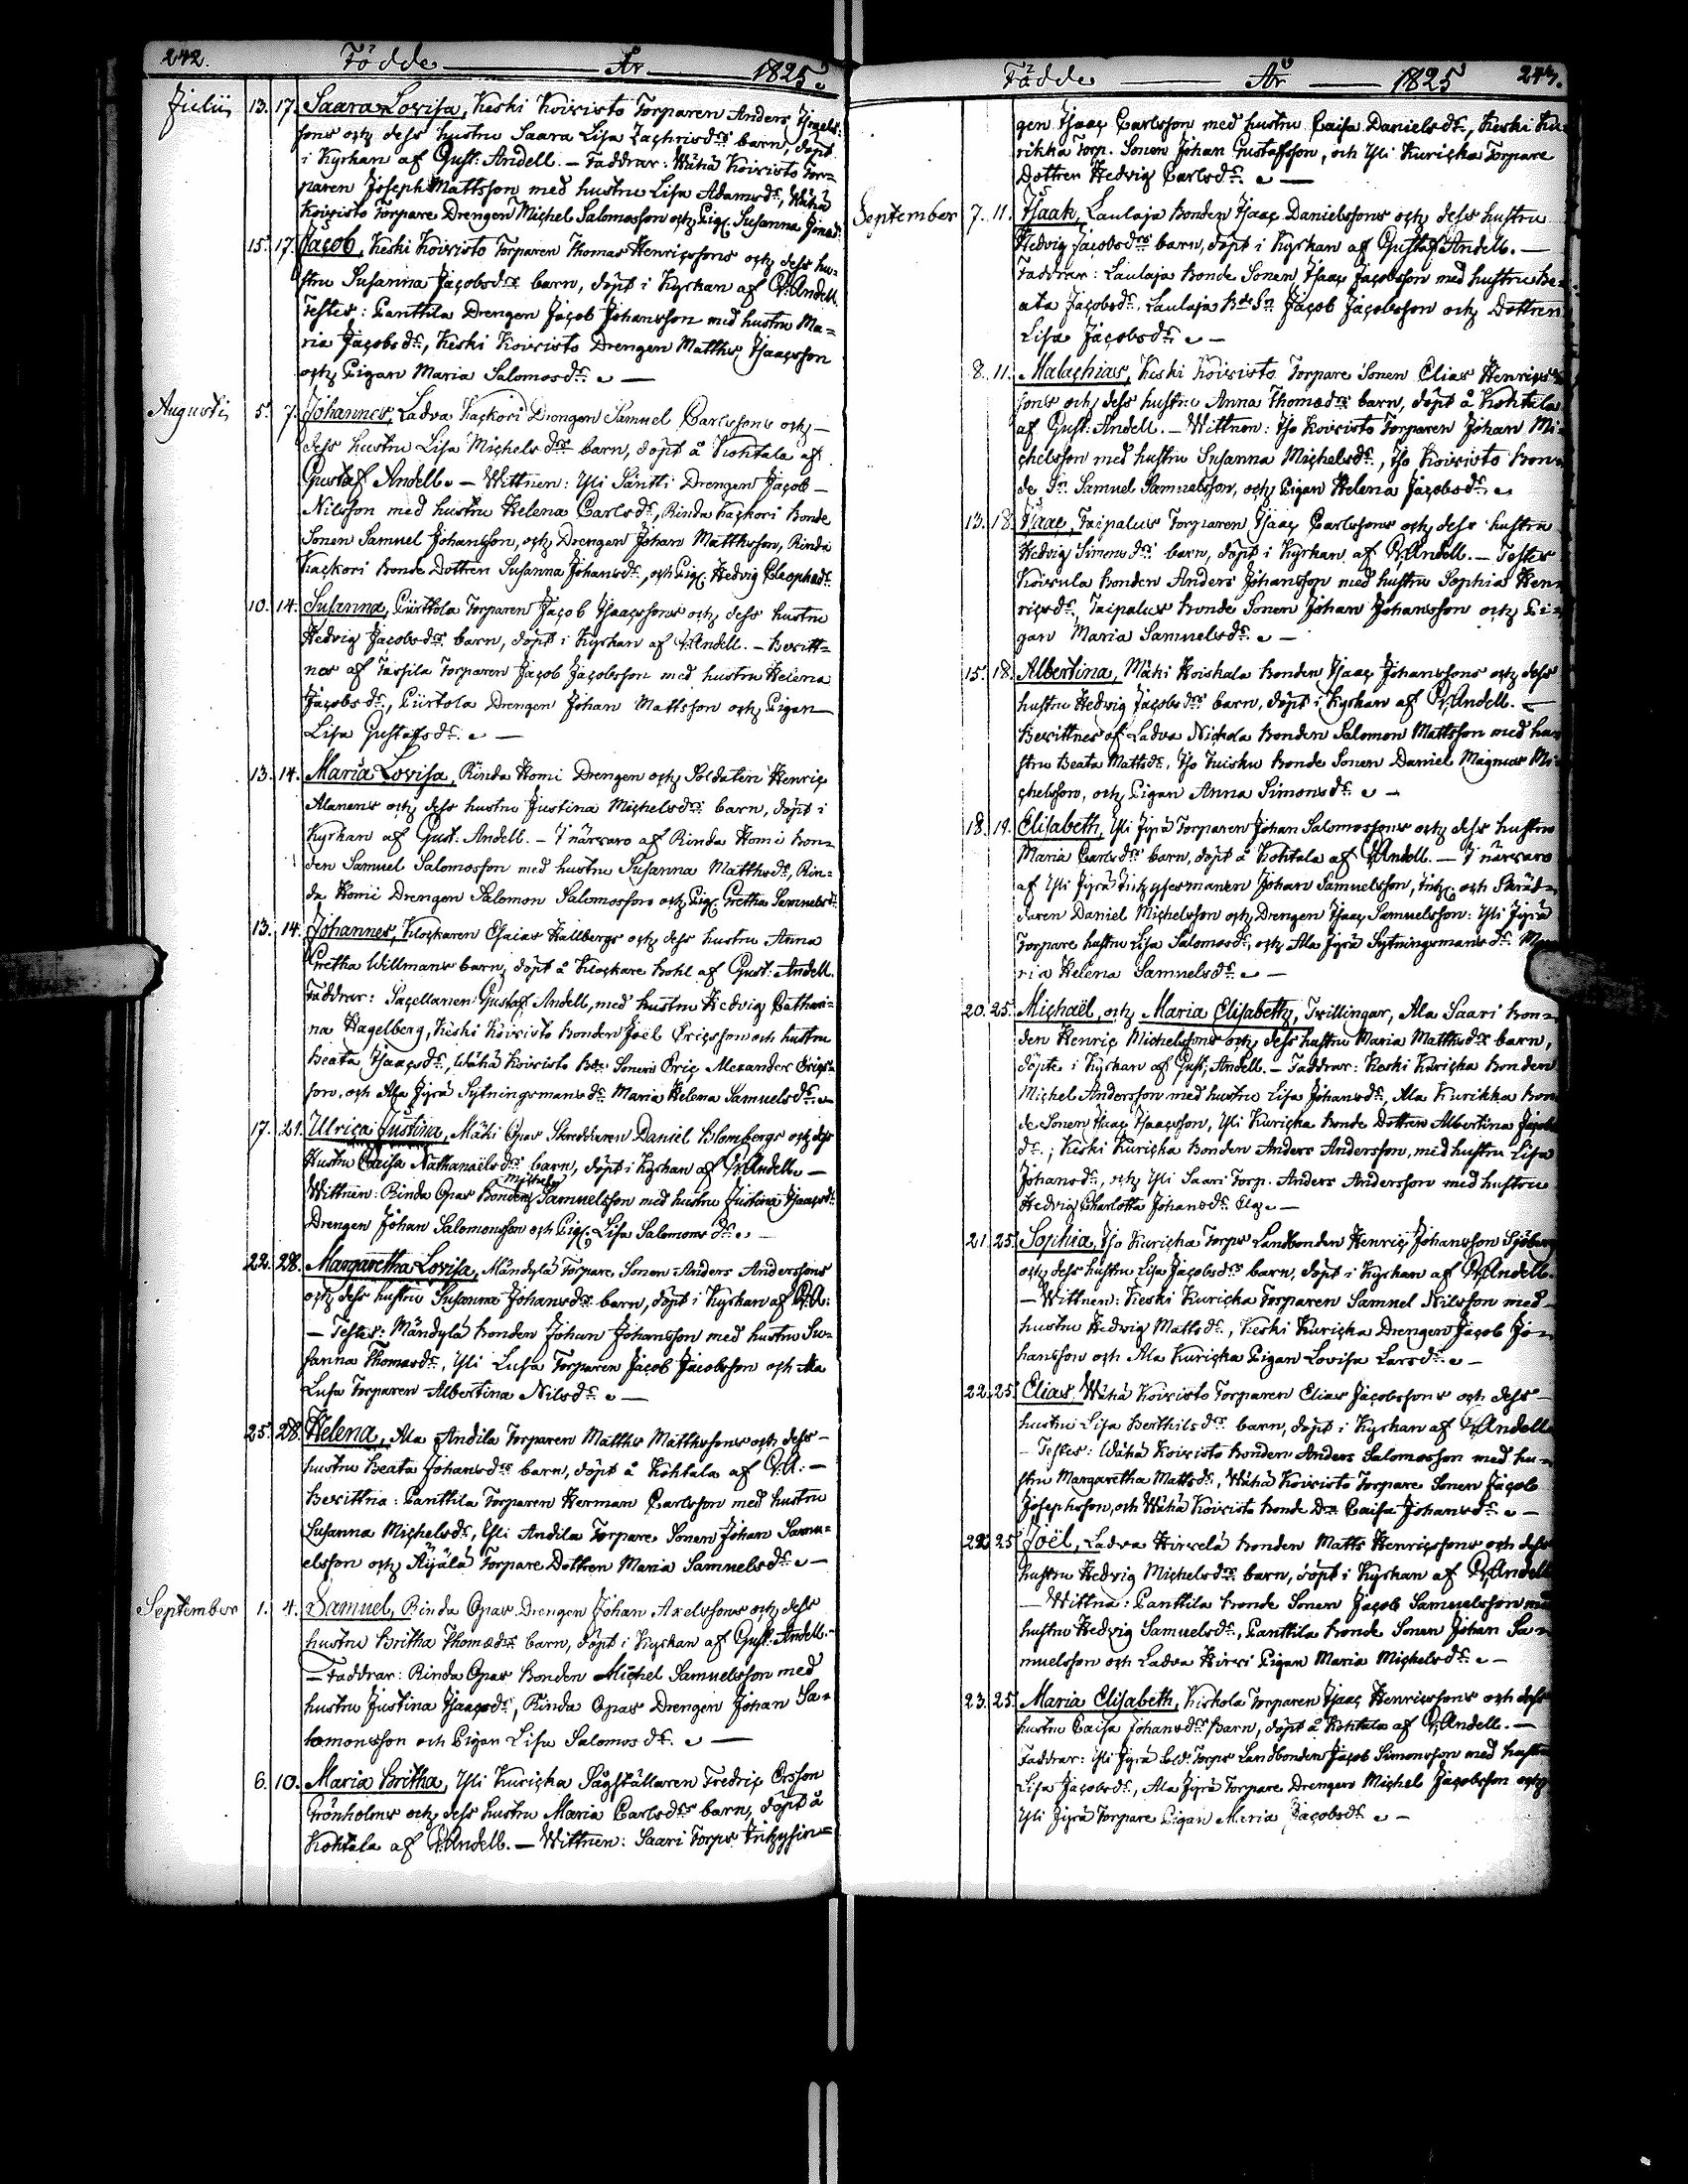 242. Födde År 1825.
Julii 13. 17. Saara Lovisa, Keski Koivisto Torparen Anders Israels-
sons och dess hustru Saara Lisa Zachrisdrs barn, döpt
i Kyrkan af Gust: Andell. – Faddrar: Wähä Koivisto Tor-
paren Joseph Mattsson med hustru Lisa Adamsdr, Wähä
Koivisto Torpare Drengen Michel Salomosson och Pig. Susanna
15. 17. Jacob, Keski Koivisto Torparen Thomas Henricssons och dess hu-
stru Susanna Jacobsdrs barn, döpt i Kyrkan af G: Andell.
Testes: Panttila Drengen Jacob Johansson med hustru Ma-
ria Jacobsdr, Keski Koivisto Drengen Matths Isaacsson
och Pigan Maria Salomosdr. –
Augusti 5. 7. Johannes, Ladva Kackori Drengen Samuel Carlssons och –
dess hustru Lisa Michelsdrs barn, döpt å Kohtala af
Gustaf Andell. – Wittnen: Yli Säntti Drengen Jacob –
Nilsson med hustru Helena Carlsdr, Rinda Kackori Bonde
Sonen Samuel Johansson, och Drengen Johan Matthsson, Rinda
Kackori Bonde Dottren Susanna Johansdr, och Pig. Hedvig Cleophsdr.
10. 14. Susanna, Piirttola Torparen Jacob Isaacssons och dess hustru
Hedvig Jacobsdrs barn, döpt i Kyrkan af G: Andell. – Bevitt-
nes af Tassila Torparen Jacob Jacobsson med hustru Helena
Jacobsdr, Piirtola Drengen Johan Mattsson och Pigan
Lisa Gustafsdr. –
13. 14. Maria Lovisa, Rinda Homi Drengen och Soldaten Henric
Alanens och dess hustru Justina Michelsdrs barn, döpt i
Kyrkan af Gust: Andell. – I närvaro af Rinda Homi Bon-
den Samuel Salomosson med hustru Susanna Matthsdr, Rin-
da Homi Drengen Salomon Salomosson och Pig. Gretha Samuelsdr
13. 14. Johannes, Klockaren Esaias Hallbergs och dess hustru Anna
Gretha Willmans barn, döpt å Klockare Bohl af Gust: Andell.
Faddrar: Sacellanen Gustaf Andell, med hustru Hedvig Cathari-
na Hagelberg, Keski Koivisto Bonden Joël Ericsson och hustru
Beata Isaacsdr, Wähä Koivisto Bde Sonen Eric Alexander Erics-
son, och Ala Jyrä Sytningsmans dr Maria Helena Samuelsdr. –
17. 21. Ulrica Justina, Mäki Opas Skreddaren Daniel Blombergs och dess
Hustru Caisa Nathanaëlsdrs barn, döpt i Kyrkan af G: Andell. –
Wittnen: Rinda Opas Bonden Michel Samuelsson med hustru Justina Isaacsdr
Drengen Johan Salomonsson och Pig. Lisa Salomonsdr. –
22. 28. Margaretha Lovisa, Mändylä Torpare Sonen Anders Anderssons
och dess hustru Susanna Johansdrs barn, döpt i Kyrkan af G: A:
– Testes: Mändylä Bonden Johan Johansson med hustru Su-
sanna Thomasdr, Yli Lusa Torparen Jacob Jacobsson och Ala
Lusa Torparen Albertina Nilsdr. –
25. 28. Helena, Ala Andila Torparen Matths Matthssons och dess –
hustru Beata Johansdrs barn, döpt å Kohtala af G: A: –
Bevittna: Panttila Torparen Herman Carlsson med hustru
Susanna Michelsdr, Yli Andila Torpare Sonen Johan Samu-
elsson och Äijälä Torpare Dottren Maria Samuelsdr. –
September 1. 4. Samuel, Rinda Opas Drengen Johan Axelssons och dess
hustru Britha Thomædrs barn, döpt i Kyrkan af Gust: Andell. –
– Faddrar: Rinda Opas Bonden Michel Samuelsson med
hustru Justina Isaacsdr, Rinda Opas Drengen Johan Sa-
lomonsson och Pigan Lisa Salomosdr. –
6. 10. Maria Britha, Yli Kuricka Sågställaren Fredric Ersson
Grönholms och dess hustru Maria Carlsdrs barn, döpt å
Kohtala af G: Andell. – Wittnen: Saari Torps Inhysin-
Födde År 1825 243.
gen Isaac Carlsson med hustru Caisa Danielsdr, Keski Ku-
rikka Torp. Sonen Johan Gustafsson, och Yli Kuricka Torpare
Dottren Hedvig Carlsdr. –
September 7. 11. Isaak, Laulaja Bonden Isaac Danielssons och dess hustru
Hedvig Jacobsdrs barn, döpt i Kyrkan af Gustaf Andell. –
Faddrar: Laulaja Bonde Sonen Isaac Jacobsson med hustru Be-
ata Jacobsdr, Laulaja Bde Sn Jacob Jacobsson och Dottren
Lisa Jacobsdr. –
8. 11. Malachias, Keski Koivisto Torpare Sonen Elias Henrics-
sons och dess hustru Anna Thomædrs barn, döpt å Kohtala
af Gust: Andell. – Wittnen: Iso Koivisto Torparen Johan Mi-
chelsson med hustru Susanna Michelsdr, Iso Koivisto Bon-
de Sn Samuel Samuelsson, och Pigan Helena Jacobsdr.
13. 18. Isaac, Taipalus Torparen Isaac Carlssons och dess hustru
Hedvig Simonsdrs barn, döpt i Kyrkan af G: Andell. – Testes
Koivula Bonden Anders Johansson med hustru Sophia Hen-
ricsdr, Taipalus Bonde Sonen Johan Johansson och Pi-
gan Maria Samuelsdr. –
15. 18. Albertina, Mäki Koiskala Bonden Isaac Johanssons och dess
hustru Hedvig Jacobsdrs barn, döpt i Kyrkan af G: Andell. –
Bevittnes af Ladva Nickola Bonden Salomon Mattsson med hu-
stru Beata Mattsdr, Iso Tuisku Bonde Sonen Daniel Magnus Mi-
chelsson, och Pigan Anna Simonsdr. –
18. 19. Elisabeth, Yli Jyrä Torparen Johan Salomossons och dess hustru
Maria Carlsdrs barn, döpt å Kohtala af G: Andell. – I närvaro
af Yli Jyrä Inhysesmannen Johan Samuelsson, Inh. och Skräd-
daren Daniel Michelsson och Drengen Isaac Samuelsson: Yli Jyrä
Torpare hustru Lisa Salomosdr, och Ala Jyrä Sytningsmans dr Ma-
ria Helena Samuelsdr. –
20. 25. Michaël, och Maria Elisabeth, Tvillingar, Ala Saari Bon-
den Henric Michelssons och dess hustru Maria Matthsdrs barn,
döpte i Kyrkan af Gust: Andell. – Faddrar: Keski Kuricka Bonden
Michel Andersson med hustru Lisa Johansdr, Ala Kurikka Bon-
de Sonen Isaac Isaacsson, Yli Kuricka Bonde Dottren Albertina Jacobs
dr; Keski Kuricka Bonden Anders Andersson, med hustru Lisa
Johansdr, och Yli Saari Torp. Anders Andersson med hustru
Hedvig Charlotta Johansdr Elg. –
21. 25. Sophia, Iso Kuricka Torps Landbonden Henric Johansson Sjöberg
och dess hustru Lisa Jacobsdrs barn, döpt i Kyrkan af G: Andell.
– Wittnen: Keski Kuricka Torparen Samuel Nilsson med –
hustru Hedwig Mattsdr, Keski Kuricka Drengen Jacob Jo-
hansson och Ala Kuricka Pigan Lovisa Larsdr. –
22. 25. Elias, Wähä Koivisto Torparen Elias Jacobssons och dess –
hustru Lisa Berthilsdrs barn, döpt i Kyrkan af G: Andell.
– Testes: Wähä Koivisto Bonden Anders Salomosson med hu-
stru Margaretha Mattsdr, Wähä Koivisto Torpare Sonen Jacob
Josephsson, och Wähä Koivisto Bonde Drn Caisa Johansdr. –
22. 25. Joël, Ladva Hirvelä Bonden Matts Henricssons och dess
hustru Hedvig Michelsdrs barn, döpt i Kyrkan af G: Andell
– Wittna: Panttila Bonde Sonen Jacob Samuelsson med
hustru Hedvig Samuelsdr, Panttila Bonde Sonen Johan Sa-
muelsson och Ladva Hirvi Pigan Maria Michelsdr. –
23. 25. Maria Elisabeth, Kiskola Torparen Isaac Henricssons och dess
hustru Caisa Johansdrs barn, döpt å Kohtala af G: Andell. –
Faddrar: Yli Jyrä Sold. Torps Landbonden Jacob Simonsson med hustru
Lisa Jacobsdr, Ala Jyrä Torpare Drengen Michel Jacobsson och
Yli Jyrä Torpare Pigan Maria Jacobsdr. –